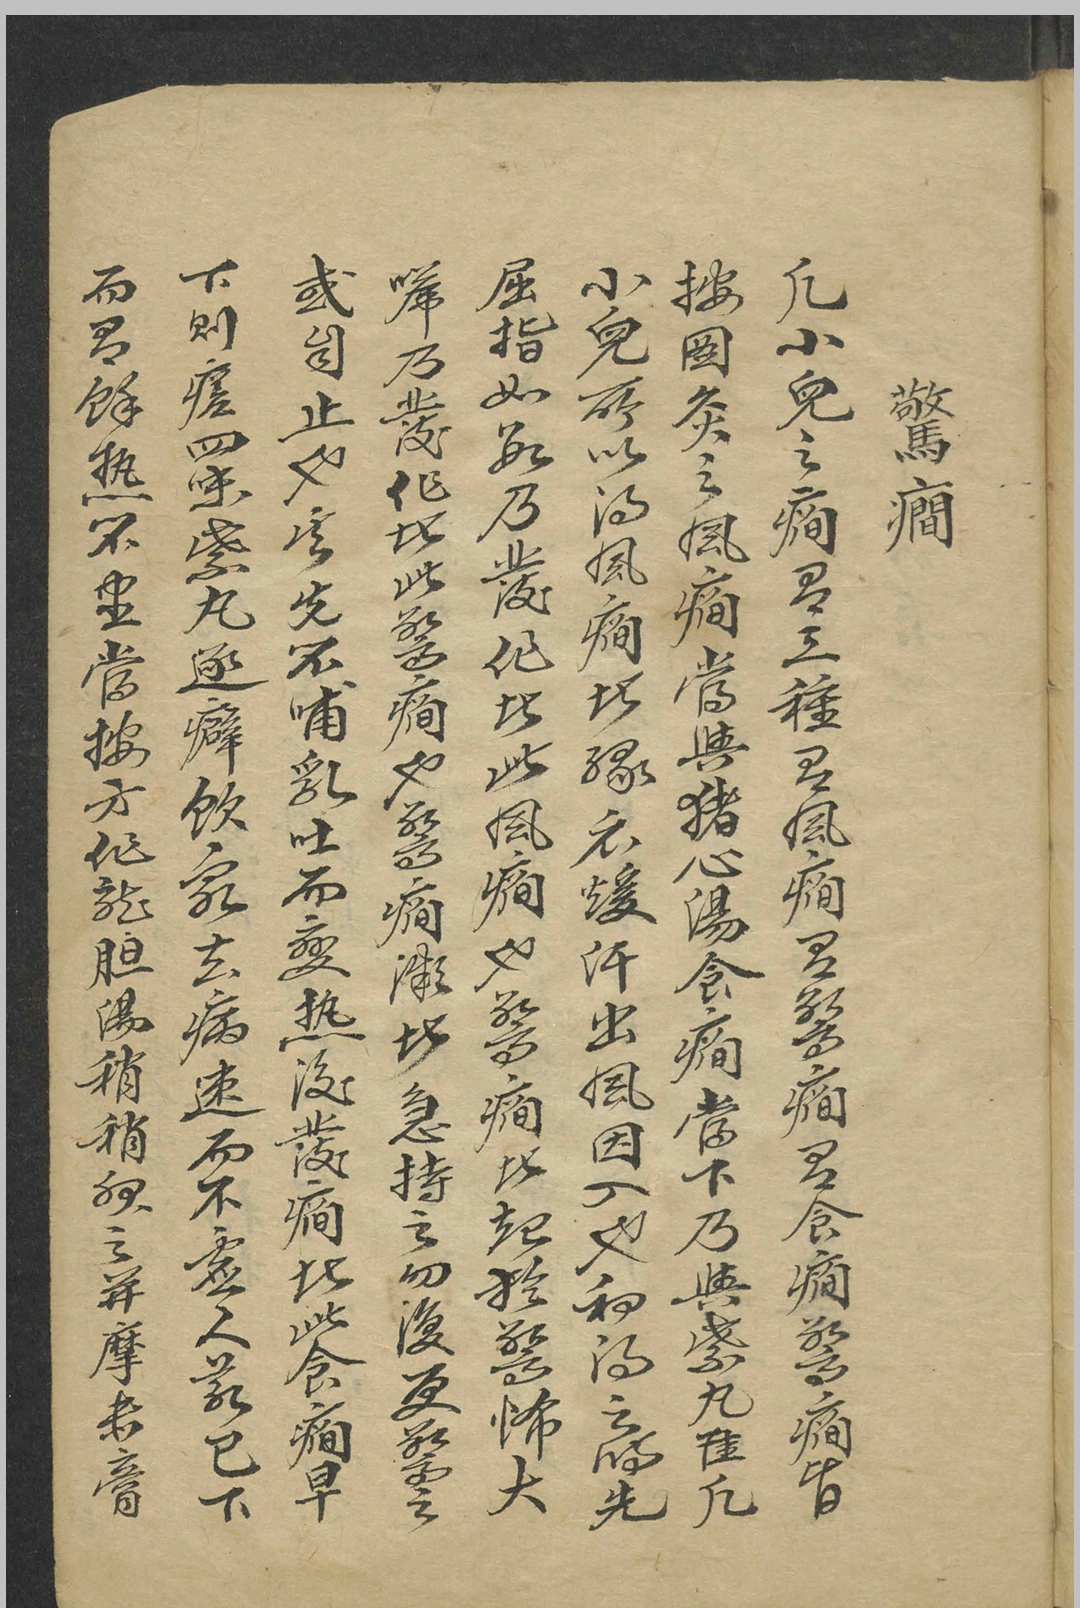 驚癇
凡小兒之癇有三種有風癇有驚癇有食癇驚癇皆
按圖灸之風癇當與猪心湯食癇當下乃與紫丸佳凡
小兒所以得風癇者緣衣煖汗出風因入也初得之時先
屈指如數乃發作者此風癇也驚癇者起於驚怖大
啼乃發作者此驚癇也驚癇微者急持之勿復更驚之
或自止也其先不哺乳吐而變热後發癇者此食癇早
下則瘥四味紫丸逐癖飲最去病速而不虛人若已下
而有餘热不盡當按方作龍胆湯稍稍與之并摩赤膏